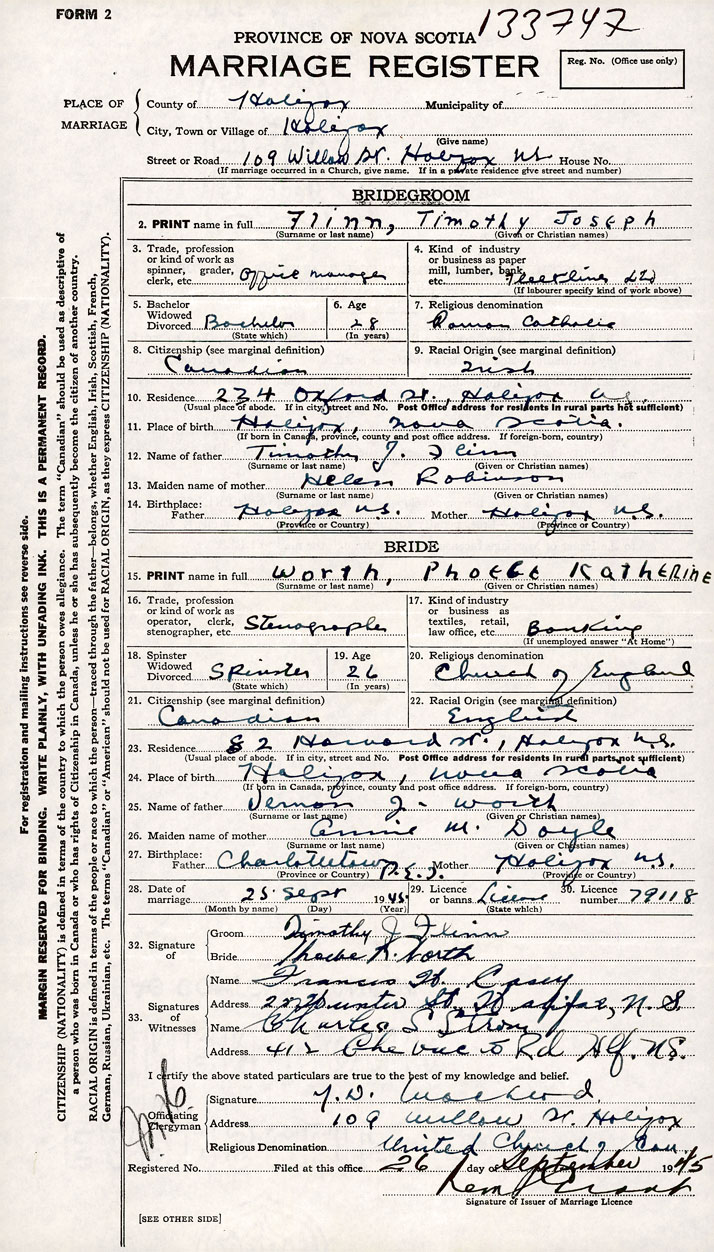 FORM 2
133747
PROVINCE OF NOVA SCOTIA
MARRIAGE REGISTER
Reg. No. (Office use only)
PLACE OF MARRIAGE
County of Halifax Municipality of
City, Town or Village of Halifax
(Give name)
Street or Road 109 Willow St. Halifax NS House No.
(If marriage occurred in a Church, give name. If in a private residence give street and number)
BRIDEGROOM
2. PRINT name in full Flinn, Timothy Joseph
(Surname or last name) (Given or Christian names)
3. Trade, profession or kind of work as spinner, grader, clerk, etc. Office manager
4. Kind of industry or business as paper mill, lumber, bank, etc. Fleetlines Ltd
(If labourer specify kind of work above)
5. Bachelor Widowed Divorced Bachelor
(State which)
6. Age 28
(In years)
7. Religious denomination Roman Catholic
8. Citizenship (see marginal definition) Canadian
9. Racial Origin (see marginal definition) Irish
10. Residence 234 Oxford St., Halifax N.S.
(Usual place of abode. If in city, street and No. Post Office address for residents in rural parts not sufficient)
11. Place of birth Halifax, Nova Scotia.
(If born in Canada, province, county and post office address. If foreign-born, country)
12. Name of father Timothy J. Flinn
(Surname or last name) (Given or Christian names)
13. Maiden name of mother Helen Robinson
(Surname or last name) (Given or Christian names)
14. Birthplace: Father Halifax N.S. Mother Halifax N.S.
(Province or Country) (Province or Country)
BRIDE
15. PRINT name in full Worth, Phoebe Katherine
(Surname or last name) (Given or Christian names)
16. Trade, profession or kind of work as operator, clerk, stenographer, etc. Stenographer
17. Kind of industry or business as textiles, retail, law office, etc. Banking
(If unemployed answer "At Home")
18. Spinster Widowed Divorced Spinster
(State which)
19. Age 26
(In years)
20. Religious denomination Church of England
21. Citizenship (see marginal definition) Canadian
22. Racial Origin (see marginal definition) English
23. Residence 82 Harvard St., Halifax N.S.
(Usual place of abode. If in city, street and No. Post Office address for residents in rural parts not sufficient)
24. Place of birth Halifax, Nova Scotia
(If born in Canada, province, county and post office address. If foreign-born, country)
25. Name of father Vernon J. Worth
(Surname or last name) (Given or Christian names)
26. Maiden name of mother Annie M. Doyle
(Surname or last name) (Given or Christian names)
27. Birthplace: Father Charlottetown P.E.I. Mother Halifax N.S.
(Province or Country) (Province or Country)
28. Date of marriage 25 Sept 1945
(Month by name) (Day) (Year)
29. Licence or banns License
(State which)
30. Licence number 79118
32. Signature of
Groom Timothy J Flinn
Bride Phoebe K. Worth
33. Signatures of Witnesses
Name Francis W. Casey
Address St. Halifax, N.S
Name Charles S Strong
Address 412 Chebucto Rd Hfx. NS.
I certify the above stated particulars are true to the best of my knowledge and belief.
Officiating Clergyman
Signature
Address 109 Willow St. Halifax
Religious Denomination United Church of Can
Registered No. Filed at this office 26 day of September 1945
Grant
Signature of Issuer of Marriage Licence
[SEE OTHER SIDE]
For registration and mailing instructions see reverse side.
MARGIN RESERVED FOR BINDING. WRITE PLAINLY, WITH UNFADING INK. THIS IS A PERMANENT RECORD.
CITIZENSHIP (NATIONALITY) is defined in terms of the country to which the person owes allegiance. The term "Canadian" should be used as descriptive of
a person who was born in Canada or who has rights of Citizenship in Canada, unless he or she has subsequently become the citizen of another country.
RACIAL ORIGIN is defined in terms of the people or race to which the person—traced through the father—belongs, whether English, Irish, Scottish, French,
German, Russian, Ukrainian, etc. The terms "Canadian" or "American" should not be used for RACIAL ORIGIN, as they express CITIZENSHIP (NATIONALITY).